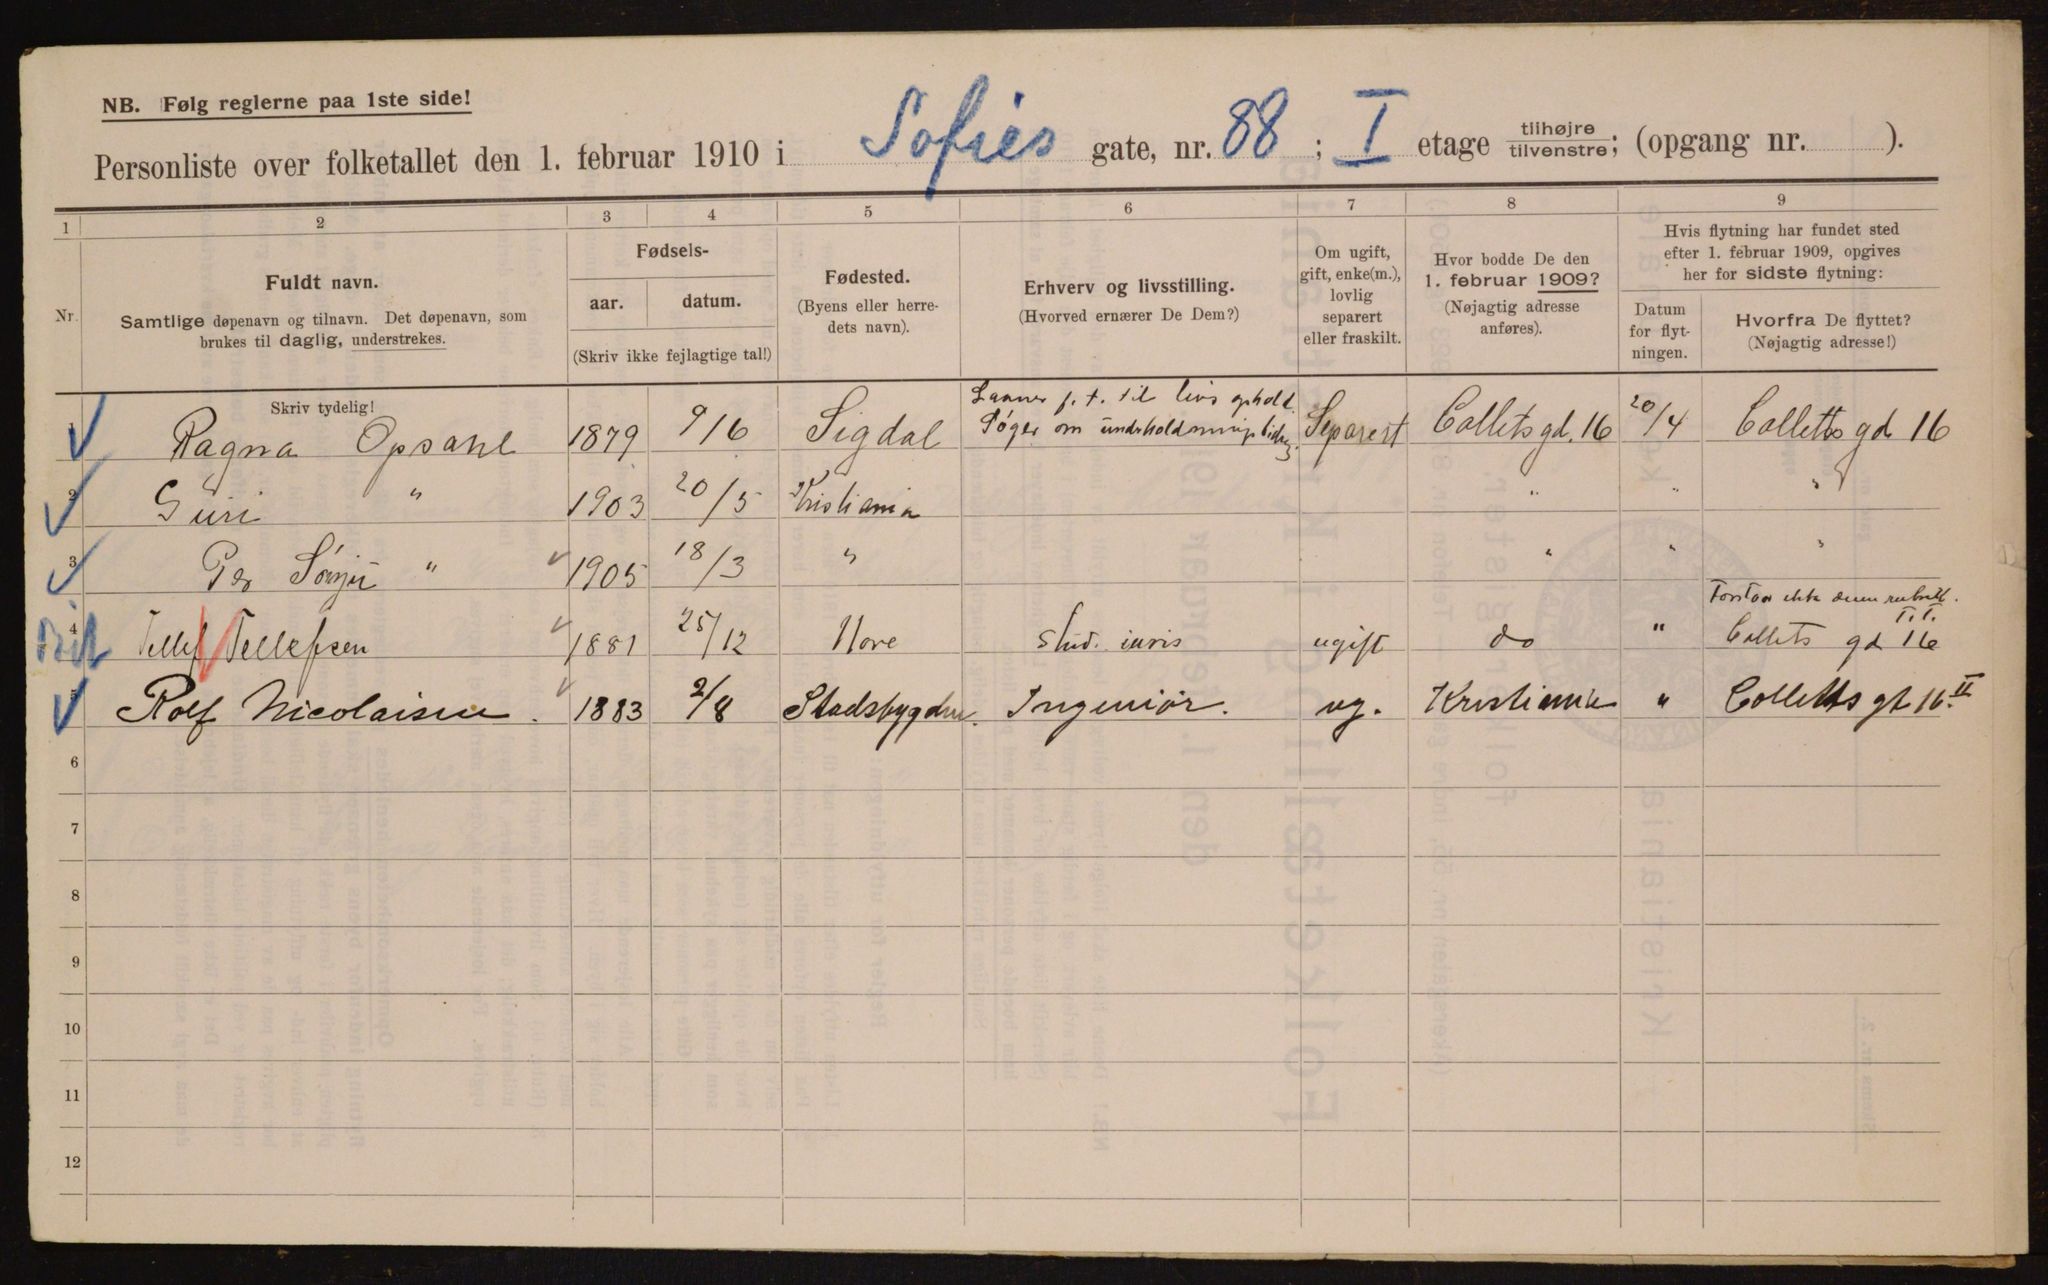 NB. Følg reglerne paa 1ste side!
Personliste over folketallet den 1. februar 1910 i Sofies gate, nr. 88 ; I etage tilhøjre tilvenstre; (opgang nr. ).
1 2 3 4 5 6 7 8 9
Nr.
Fuldt navn.
Samtlige døpenavn og tilnavn. Det døpenavn, som
brukes til daglig, understrekes.
Fødsels-
aar. datum.
(Skriv ikke fejlagtige tal!)
Fødested.
(Byens eller herre-
dets navn).
Erhverv og livsstilling.
(Hvorved ernærer De Dem?)
Om ugift,
gift, enke(m.),
lovlig
separert
eller fraskilt.
Hvor bodde De den
1. februar 1909?
(Nøjagtig adresse
anføres).
Hvis flytning har fundet sted
efter 1. februar 1909, opgives
her for sidste flytning:
Datum
for flyt-
ningen.
Hvorfra De flyttet?
(Nøjagtig adresse!)
Skriv tydelig!
1 Ragna Opsahl 1879 9/6 Sigdal Laaner p. t. til livsophold. Søger om underholdningsbidrag. Separert Collets gd. 16 20/4 Colletts gd 16
2 Guri " 1903 20/5 Kristiania " " "
3 Per " 1905 18/3 " " " "
Forstaar ikke denne rubrikk. T.T.
4 Tellef Tellefsen 1881 25/12 Hove stud. iuris ugift do " Collets gd 16
5 Rolf Nicolaisen. 1883 2/8 Stadsbygden. Ingeniør. ug. Kristiania " Colletts gt 16. II
6
7
8
9
10
11
12